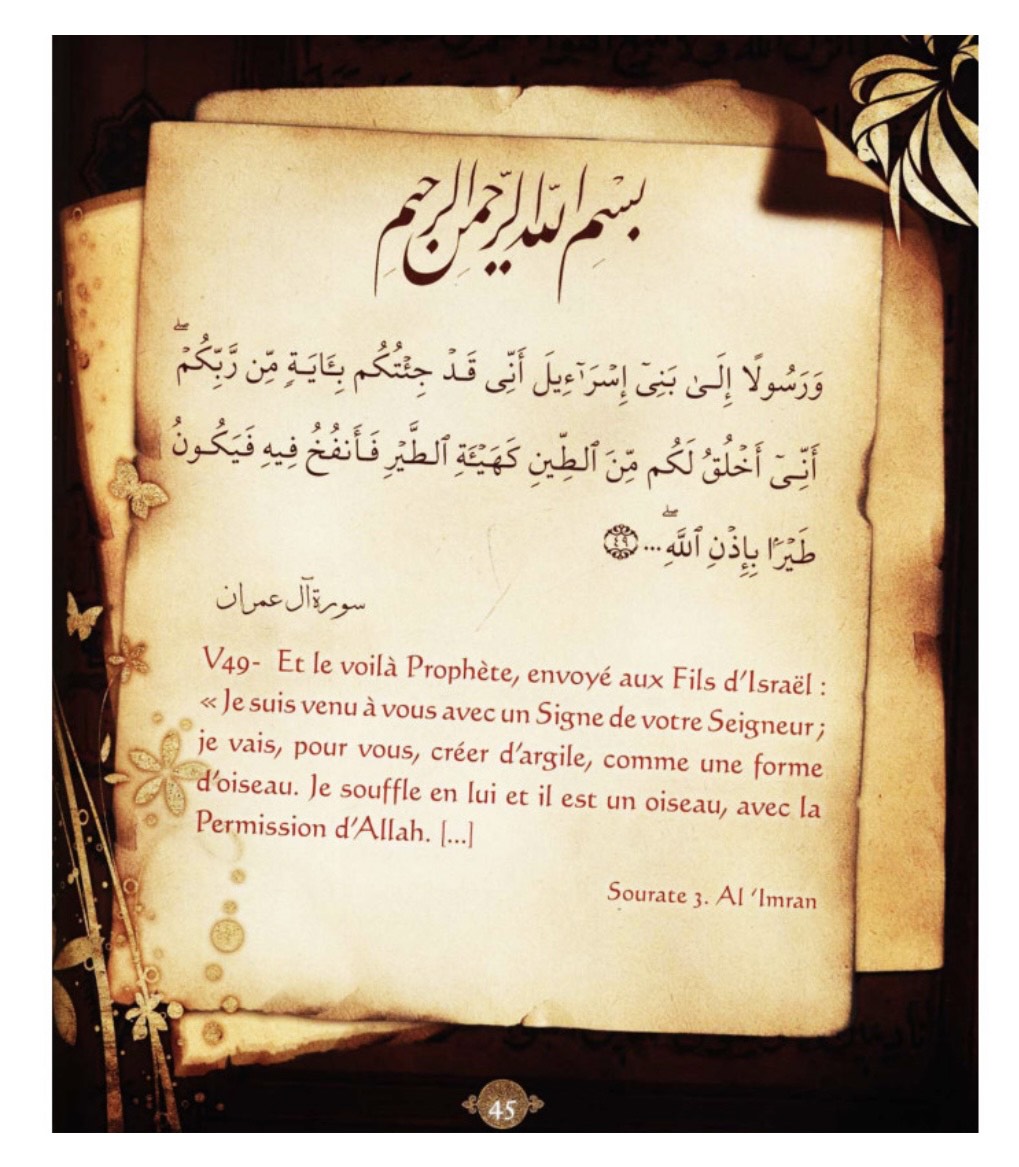 بِسْمِ اللّٰهِ الرَّحْمٰنِ الرَّحِيْمِ
وَرَسُولًا إِلَىٰ بَنِىٓ إِسْرَٰٓءِيلَ أَنِّى قَدْ جِئْتُكُم بِـَٔايَةٍ مِّن رَّبِّكُمْ ۖ
أَنِّىٓ أَخْلُقُ لَكُم مِّنَ ٱلطِّينِ كَهَيْـَٔةِ ٱلطَّيْرِ فَأَنفُخُ فِيهِ فَيَكُونُ
طَيْرًۢا بِإِذْنِ ٱللَّهِ ۖ ... ٤٩
سورة آل عمران
V49- Et le voilà Prophète, envoyé aux Fils d’Israël :
« Je suis venu à vous avec un Signe de votre Seigneur ;
je vais, pour vous, créer d’argile, comme une forme
d’oiseau. Je souffle en lui et il est un oiseau, avec la
Permission d’Allah. [...]
Sourate 3. Al ‘Imran
45